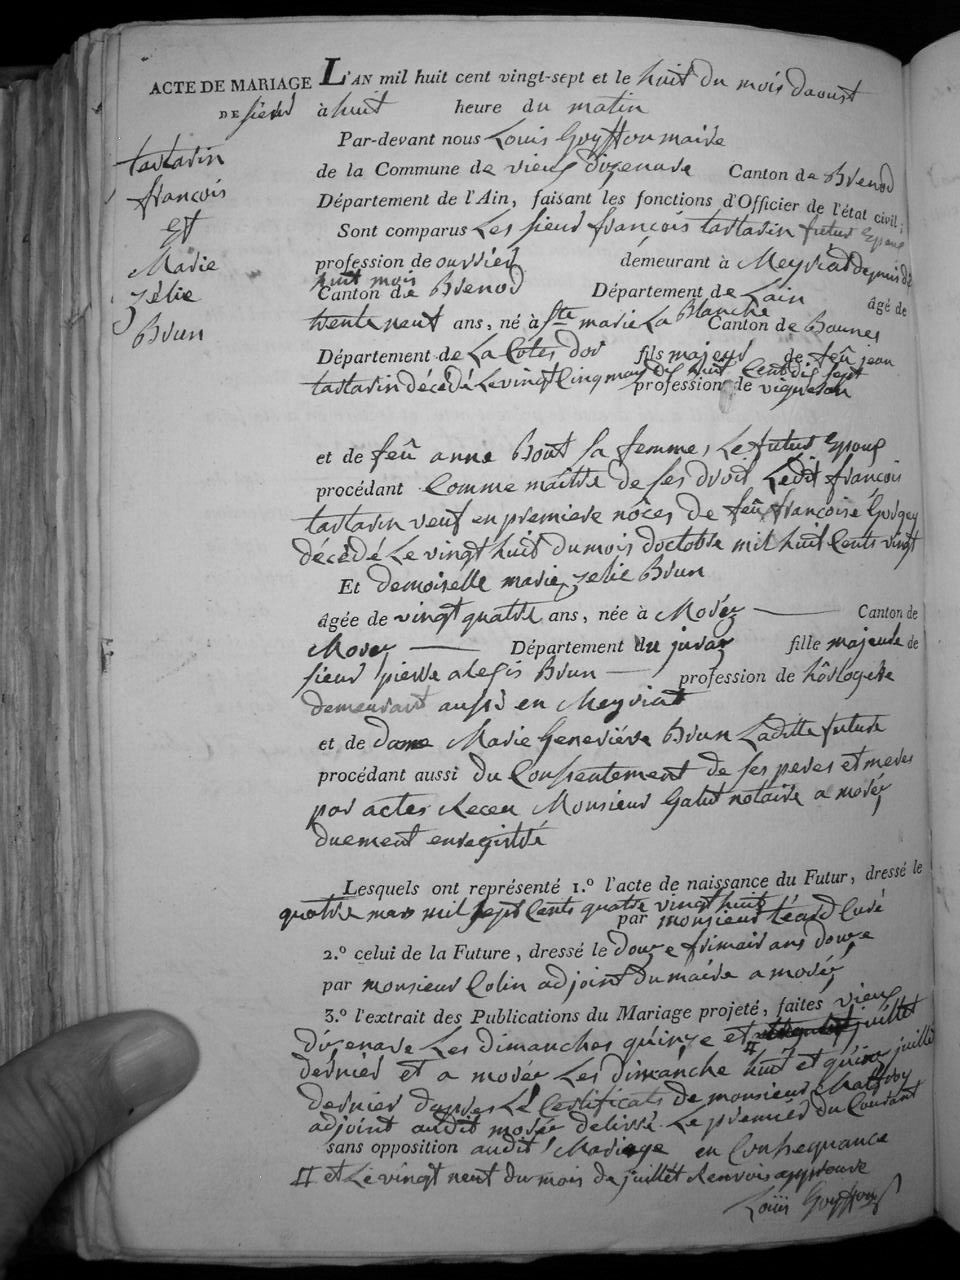 ACTE DE MARIAGE
DE sieur
tartarin
françois
Et
Marie
zélie
Brun
L'AN mil huit cent vingt-sept et le huit du mois daoust
à huit heure du matin
Par-devant nous Louis Goyffon maire
de la Commune de vieux dizenave Canton de Brenod
Département de l'Ain, faisant les fonctions d'Officier de l'état civil;
Sont comparus Les sieur françois tartarin futur Epoux
profession de ouvrier demeurant à Meyriat depuis
huit mois
Canton de Brenod Département de Lain âgé de
trente neuf ans, né à Ste marie La Blanche Canton de Baunes
Département de La Côtes dor fils majeur de feû jean
tartarin décédé Le vingt Cinq may dix huit Cent dix sept profession de vigneron
et de feû anne Bout sa femme, Le futur Epoux
procédant Comme maître de ses droit Ledit françois
tartarin veuf en premiere nôces de feû françoise
décédé Le vingt huit du mois doctobre mil huit Cents vingt
Et demoiselle marie zelie Brun
âgée de vingt quatre ans, née à Moréz Canton de
Morez Département du juraz fille majeure de
sieur pierre alegis Brun profession de hôrlogére
demeurant aussi en Meyriat
et de dame Marie Geneviéve Brun Laditte future
procédant aussi du Consentement de ses peres et meres
par actes Receu Monsieur Galut notaire a moréz
duement enregistré
Lesquels ont représenté 1.º l'acte de naissance du Futur, dressé le
quattre mars mil sept Cents quatre vingt huit
par monsieur téard Curé
2.º celui de la Future, dressé le douze frimair ans douze
par monsieur Colin adjoint du maire a moréz
3.º l'extrait des Publications du Mariage projeté, faites vieux
dizenave Les dimanches quinze et juillet
dernier et a moréz Les dimanche huit et quinze juillet
dernier dapres Le Certificats de monsieur
adjoint audit moréz delivré Le premier du Courant
sans opposition audit Mariage en Consequance
et Le vingt neuf du mois de juillet Renvois approuve
Louis Goyffon